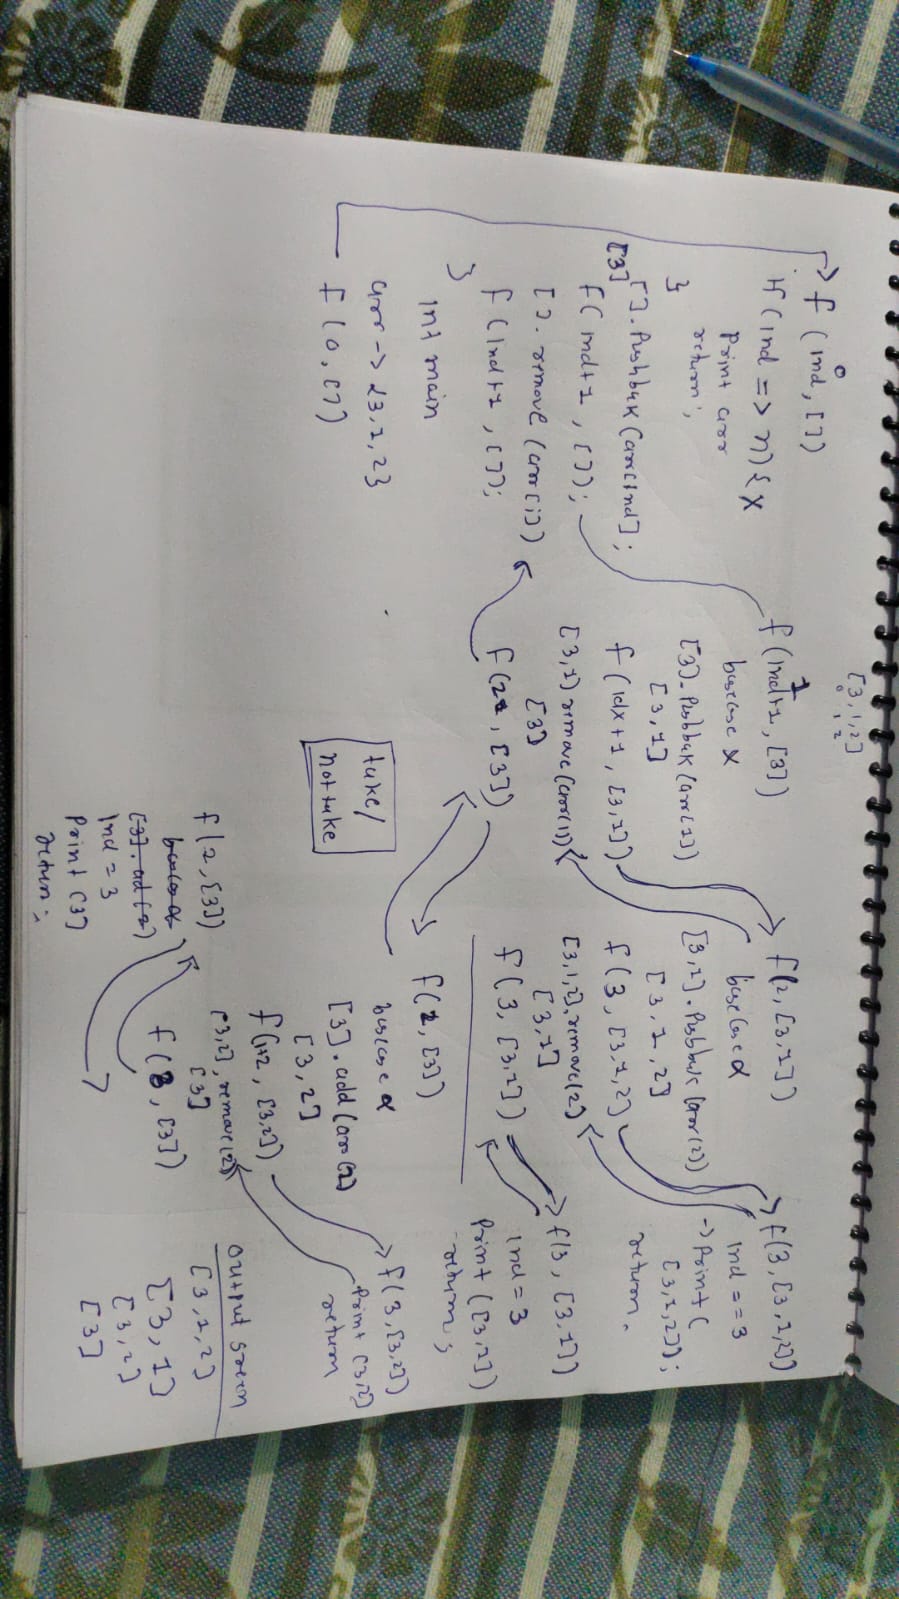 [3,1,2]
0 1 2
f(ind, [])
0
if(ind => n){ X
Print arr
return;
}
[].Pushbak(arr[ind];
[3]
f(ind+1, []);
[].remove(arr[i])
f(ind+1, []);
}
int main
arr -> {3,1,2}
f(0,[])
f(ind+1, [3])
1
basecase X
[3].Pushbak(arr[1])
[3,1]
f(idx+1, [3,1])
[3,1] remove(arr(1))
[3]
f(2, [3])
take/
not take
f(2, [3,1])
base case
[3,1].Pushbak(arr(2))
[3,1,2]
f(3, [3,1,2]
[3,1,2].remove(2)
[3,1]
f(3, [3,1])
f(2, [3])
base case
[3].add(arr(2)
[3,2]
f(1+2, [3,2])
[3,2].remove(2)
[3]
f(3, [3])
f(3,[3,1,2])
ind == 3
-> Print(
[3,1,2]);
return.
f(3, [3,1])
ind = 3
Print([3,1])
return;
f(3,[3,2])
Print [3,2]
return
f(2,[3])
[3].ad(2)
Ind = 3
Print [3]
return;
output screen
[3,1,2]
[3,1]
[3,2]
[3]